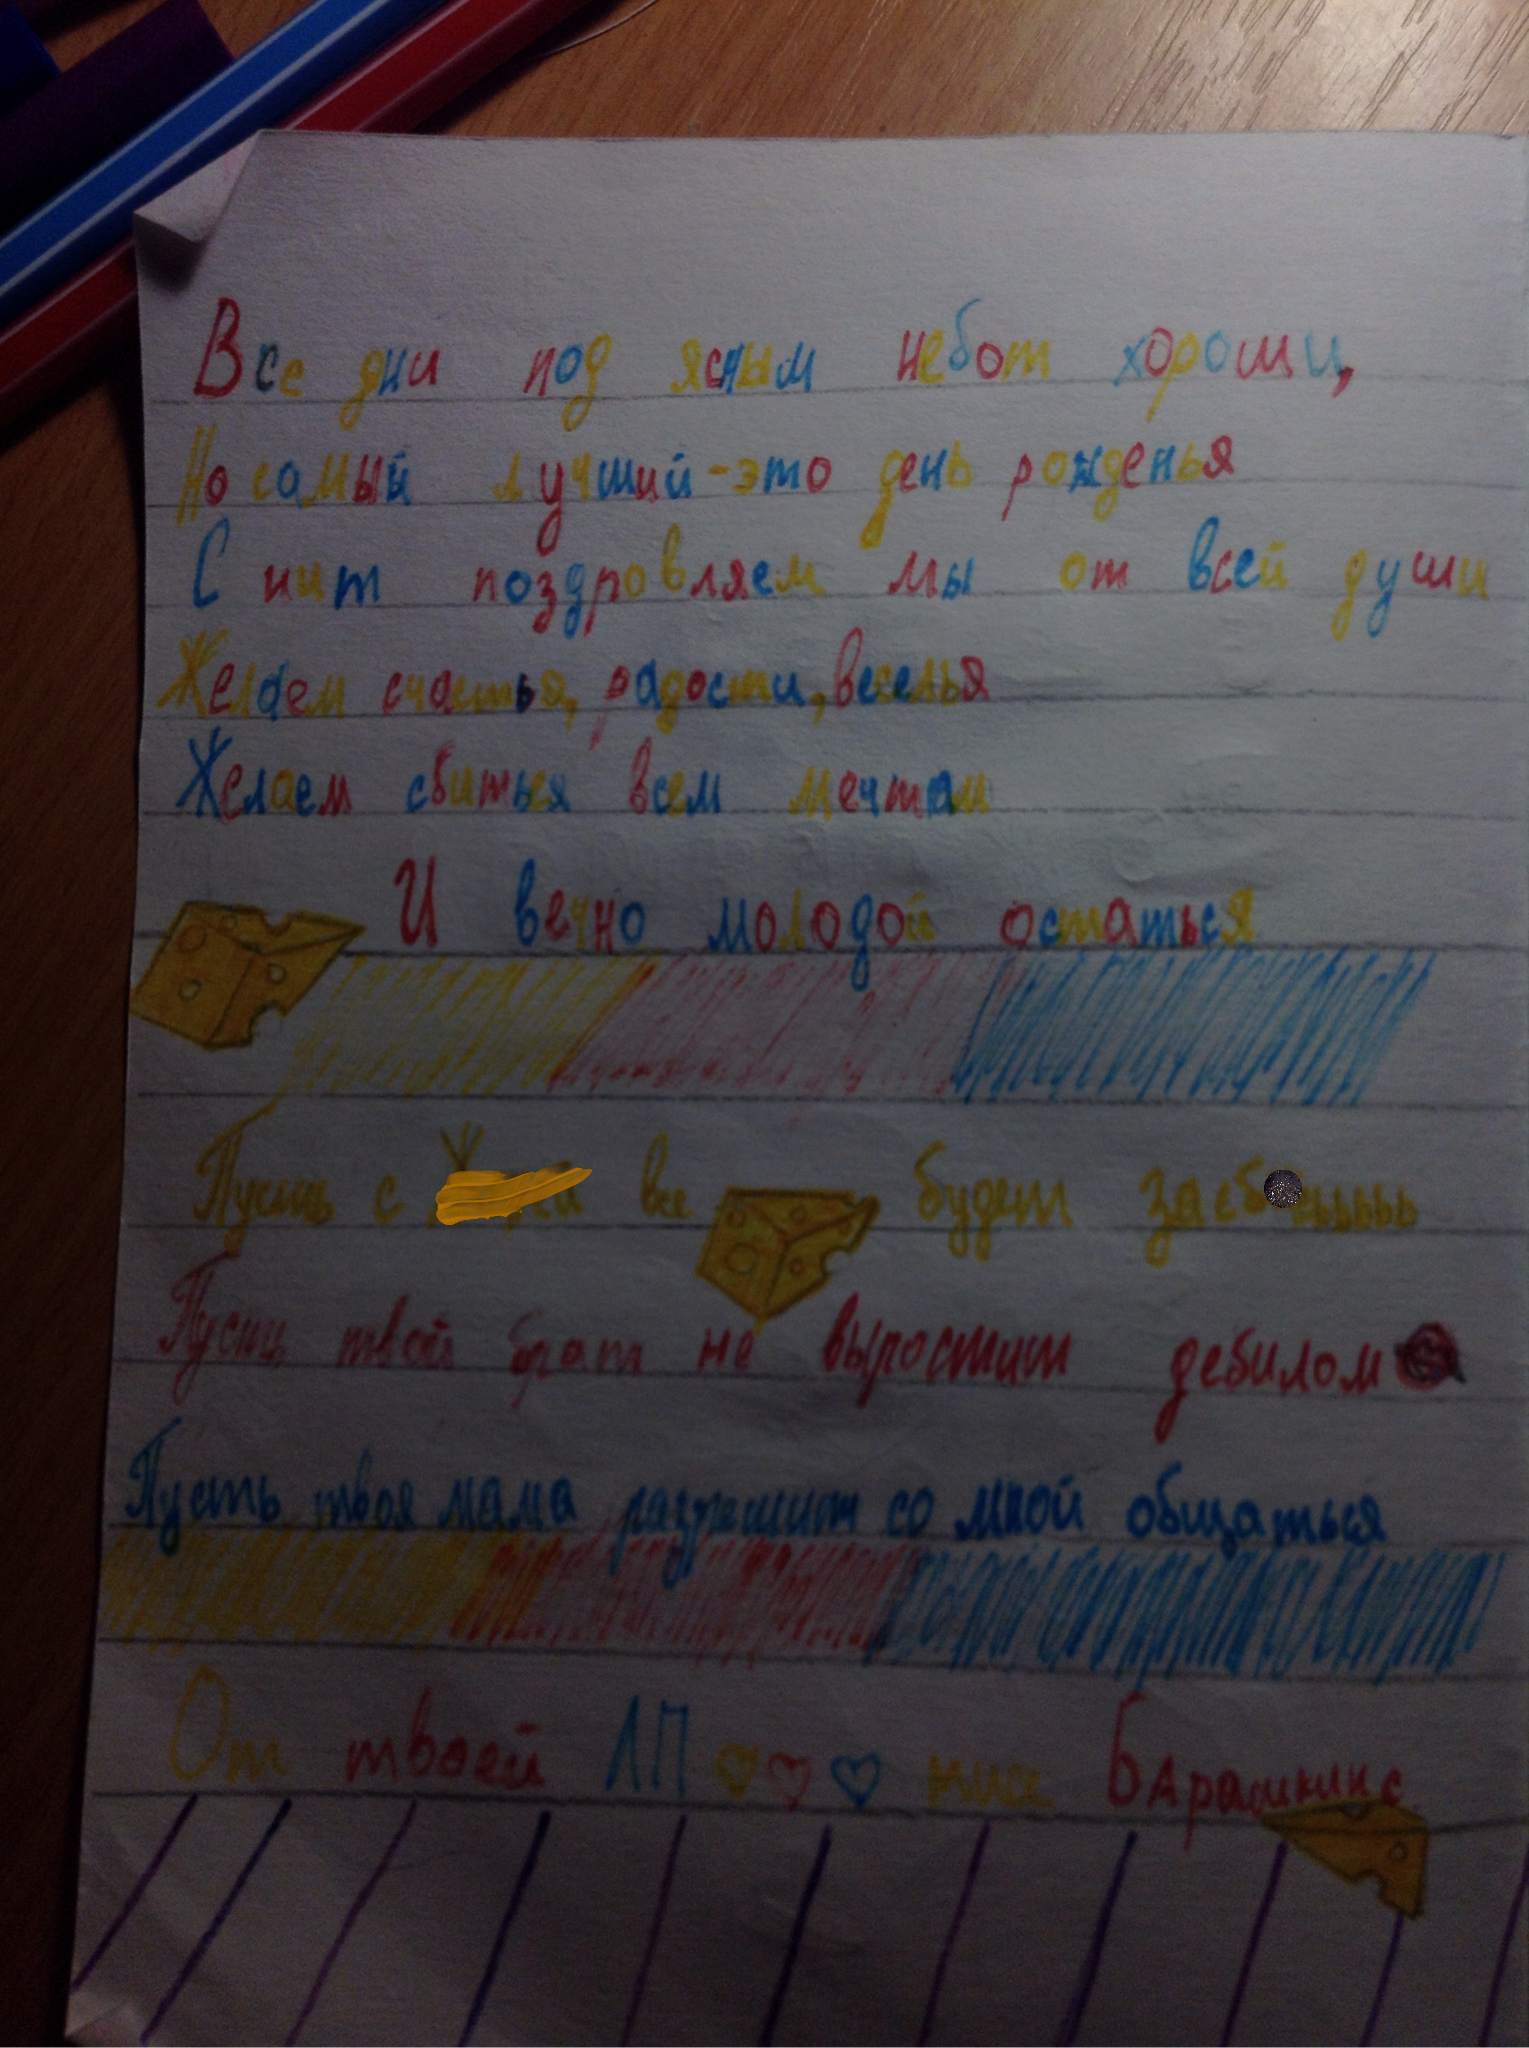 Все дни под ясным небом хороши,
Но самый лучший - это день рожденья
С ним поздровляем мы от всей души
Желаем счастья, радости, веселья
Желаем сбиться всем мечтам
И вечно молодой остаться
Пусть с все будет
Пусть твой брат не выростит дебилом
Пусть твоя мама разрешит со мной общаться
От твоей ЛП